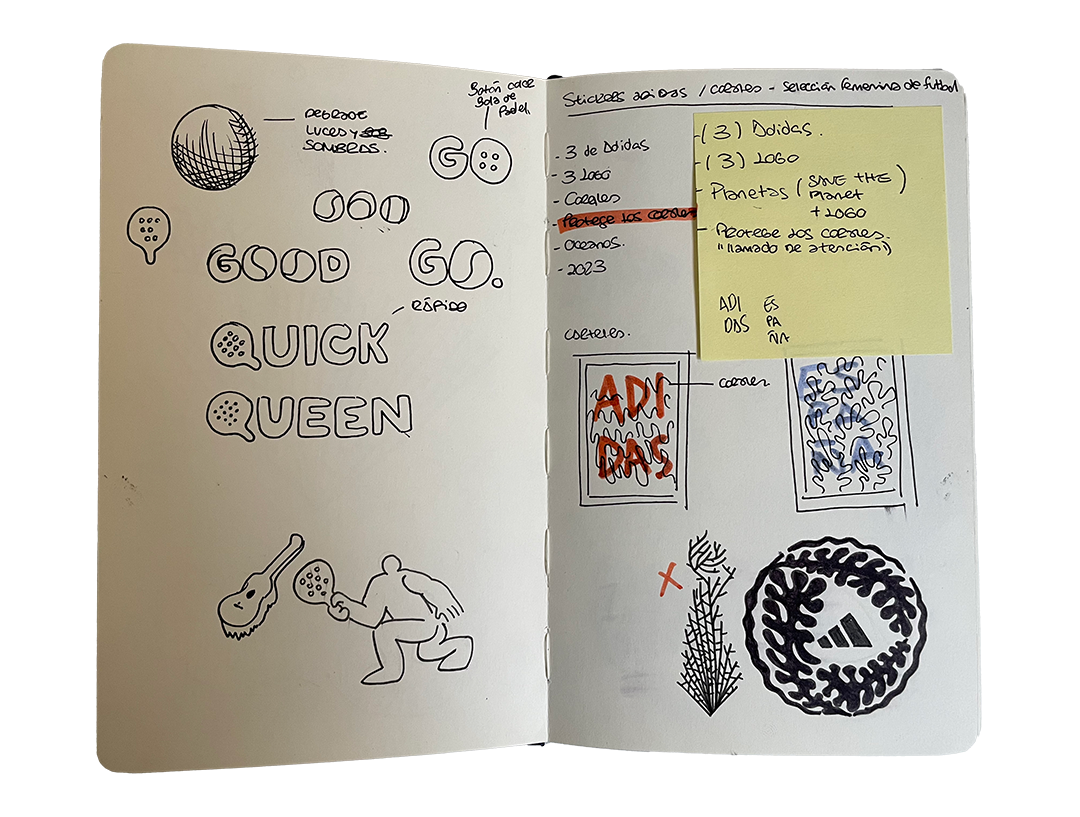 DEGRADE
LUCES Y
SOMBRAS.
Botón
Bola de
Padel.
GO
GOOD
GO.
RÁPIDO
QUICK
QUEEN
Stickers adidas / corales - Selección Femenina de futbol
- 3 de Adidas
- 3 Logo
- Corales
- Protege los corales
- Oceanos.
- 2023
- (3) Adidas.
- (3) LOGO
- Planetas (SAVE THE)
Planet
+ LOGO
- Protege los corales.
"llamado de atención")
ADI ES
DAS PA
ÑA
carteles.
ADI
DAS
corales
ES
PA
ÑA